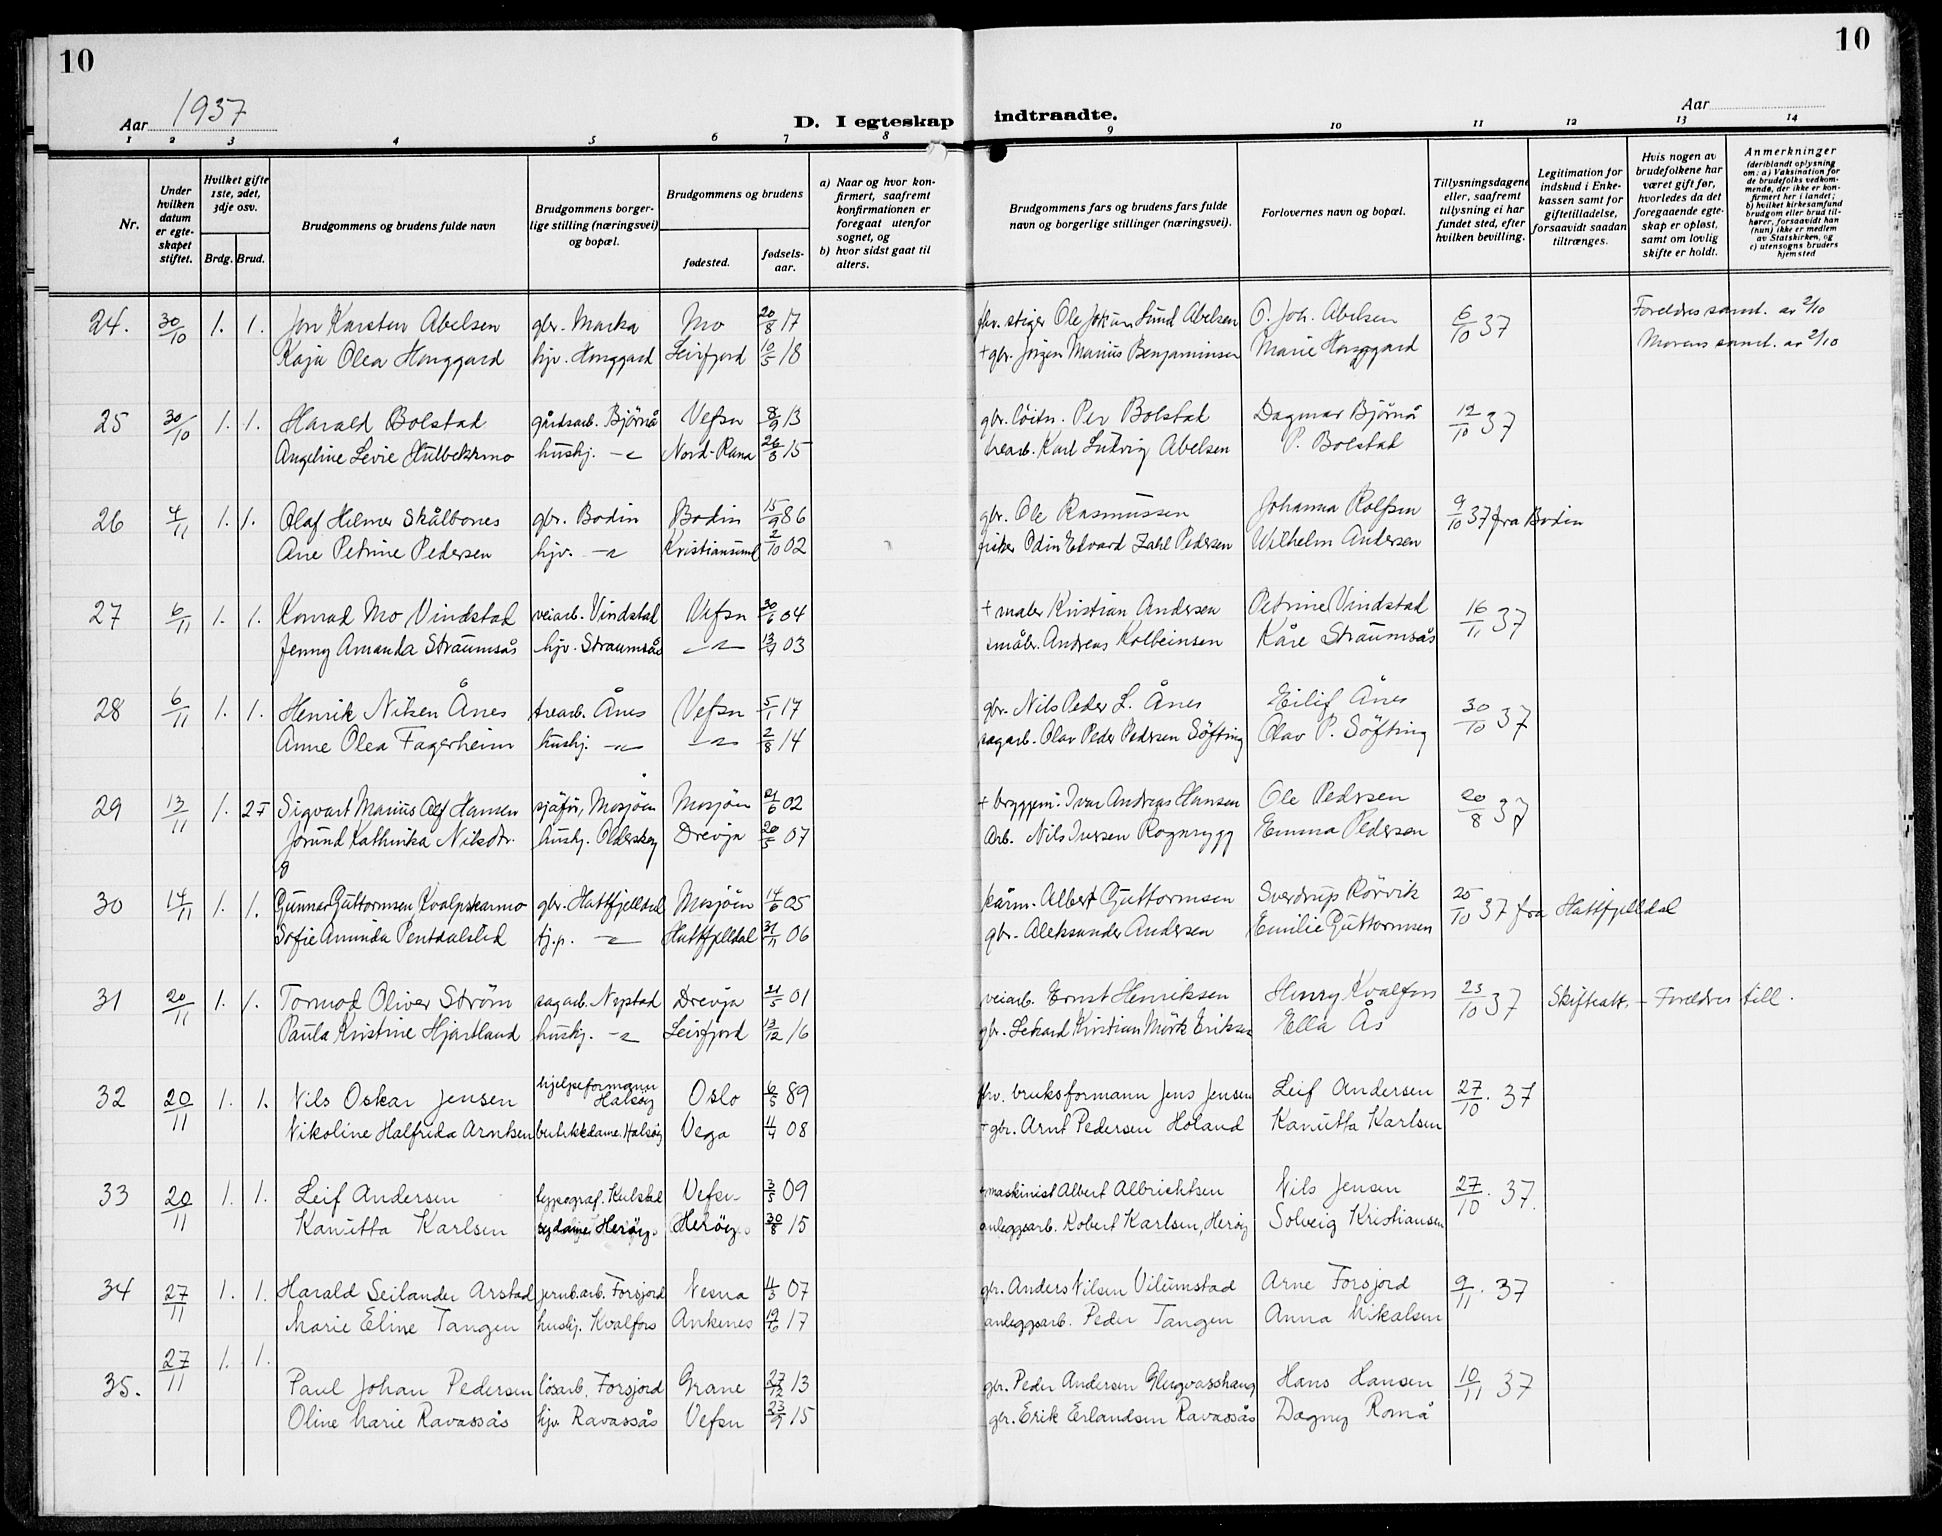 10
10
Aar 1937
D. I egteskap indtraadte.
Aar
1 2 3 4 5 6 7 8 9 10 11 12 13 14
Nr.
Under hvilken datum er egteskapet stiftet.
Hvilket gifte 1ste, 2det, 3dje osv.
Brdg. Brud.
Brudgommens og brudens fulde navn
Brudgommens borgerlige stilling (næringsvei) og bopæl.
Brudgommens og brudens
fødested.
fødselsaar.
a) Naar og hvor konfirmert, saafremt konfirmationen er foregaat utenfor sognet, og
b) hvor sidst gaat til alters.
Brudgommens fars og brudens fars fulde navn og borgerlige stillinger (næringsvei).
Forlovernes navn og bopæl.
Tillysningsdagene eller, saafremt tillysning ei har fundet sted, efter hvilken bevilling.
Legitimation for indskud i Enkekassen samt for giftetilladelse, forsaavidt saadan tiltrænges.
Hvis nogen av brudefolkene har været gift før, hvorledes da det foregaaende egteskap er opløst, samt om lovlig skifte er holdt.
Anmerkninger (deriblandt oplysning om: a) Vaksination for de brudefolks vedkommende, der ikke er konfirmert her i landet; b) hvilket kirkesamfund brudgom eller brud tilhører, forsaavidt han (hun) ikke er medlem av Statskirken, og c) utensogns bruders hjemsted
24. 30/10 1. 1. Jon Karsten Abelsen gbr. Marka Mo 20/8 17 fhv. stiger Ole Johan Lund Abelsen O. Joh. Abelsen 6/10 37 Foreldres samt. av 2/10
Kaja Olea Honggard hjv. Honggard Leirfjord 10/5 18 + gbr. Jörgen Marius Benjaminsen Marie Honggard Morens samt. av 2/10
25 30/10 1. 1. Harald Bolstad gårdsarb. Björnå Vefsn 8/9 13 gbr. löitn. Per Bolstad Dagmar Björnå 12/10 37
Angeline Levie Hulbekkmo hushj. Nord-Rana 15 trearb. Karl Ludvig Abelsen P. Bolstad
26 4/11 1. 1. Olaf Helmer Skålbones gbr. Bodin Bodin 15/9 86 gbr. Ole Rasmussen Johanna Rolfsen 9/10 37 fra Bodin
Ane Petrine Pedersen hjv. Kristiansund 2/10 02 fisker Odin Edvard Zahl Pedersen Wilhelm Andersen
27 6/11 1. 1. Konrad Mo Vindstad veiarb. Vindstad Vefsn 30/6 04 + maler Kristian Andersen Petrine Vindstad 16/11 37
Jenny Amanda Straumsås hjv. Straumsås 03 småbr. Andreas Kolbeinsen Kåre Straumsås
28 6/11 1. 1. Henrik Nilsen Ånes trearb. Ånes Vefsn 5/1 17 gbr. Nils Peder L. Ånes Eilif Ånes 30/10 37
Anne Olea Fagerheim hushj. 2/8 14 sagarb. Olav Peder Pedersen Söfting Olav P. Söfting
29 13/11 1. 2 Sigvart Marius Alf Hansen sjåför, Mosjöen Mosjöen 21/6 02 + bryggem. Ivar Andreas Hansen Ole Pedersen 20/8 37
Jorund Kathinka Nilsdtr. hushj. Olderskog Drevja 20/5 07 Arb. Nils Iversen Rognrygg Emma Pedersen
30 14/11 1. 1. Gunnar Guttormsen Kvalpskarmo gbr. Hattfjelldal Mosjöen 14/6 05 Albert Guttormsen Sverdrup Rörvik 25/10 37 fra Hattfjelldal
Sofie Aminda Pentdalslid tj.p. Hattfjelldal 06 gbr. Aleksander Andersen Emilie Guttormsen
31 20/11 1. 1. Tormod Oliver Ström sagarb. Nystad Drevja 21/5 01 veiarb. Ernst Henriksen Henry Kvalfors 23/10 37 Skifteatt. - Foreldres till.
Paula Kristine Hjartland hushj. Leirfjord 13/12 16 gbr. Lekard Kristian Mörk Eriksen Ella Ås
32 20/11 1. 1. Nils Oskar Jensen hjelpeformann Halsöy Oslo 6/5 89 fhv. bruksformann Jens Jensen Leif Andersen 27/10. 37
Nikoline Halfrida Arntsen butikkdame. Halsöy Vega 08 + gbr. Arnt Pedersen Holand Kanutta Karlsen
33 20/11 1. 1. Leif Andersen typograf. Kulstad Vefsn 3/5 09 + maskinist Albert Albrichtsen Nils Jensen 27/10. 37.
Kanutta Karlsen sydame Heröy. Heröy. 30/8 15 anleggsarb. Robert Karlsen, Heröy Solveig Kristiansen
34 27/11 1. 1. Harald Seilander Arstad jernb.arb. Forsjord Nesna 07 gbr. Anders Nilsen Vilumstad Arne Forsjord 9/11. 37
Marie Eline Tangen hushj. Kvalfors Ankenes 19/6 17 anleggsarb. Peder Tangen Anna Mikalsen
35. 27/11 1. 1. Paul Johan Pedersen lösarb. Forsjord Grane 27/12 13 gbr. Peder Andersen Glugvasshaug Hans Hansen 10/11 37
Oline Marie Ravassås hjv. Ravassås Vefsn 23/9 15 gbr. Erik Erlandsen Ravassås Dagny Romå